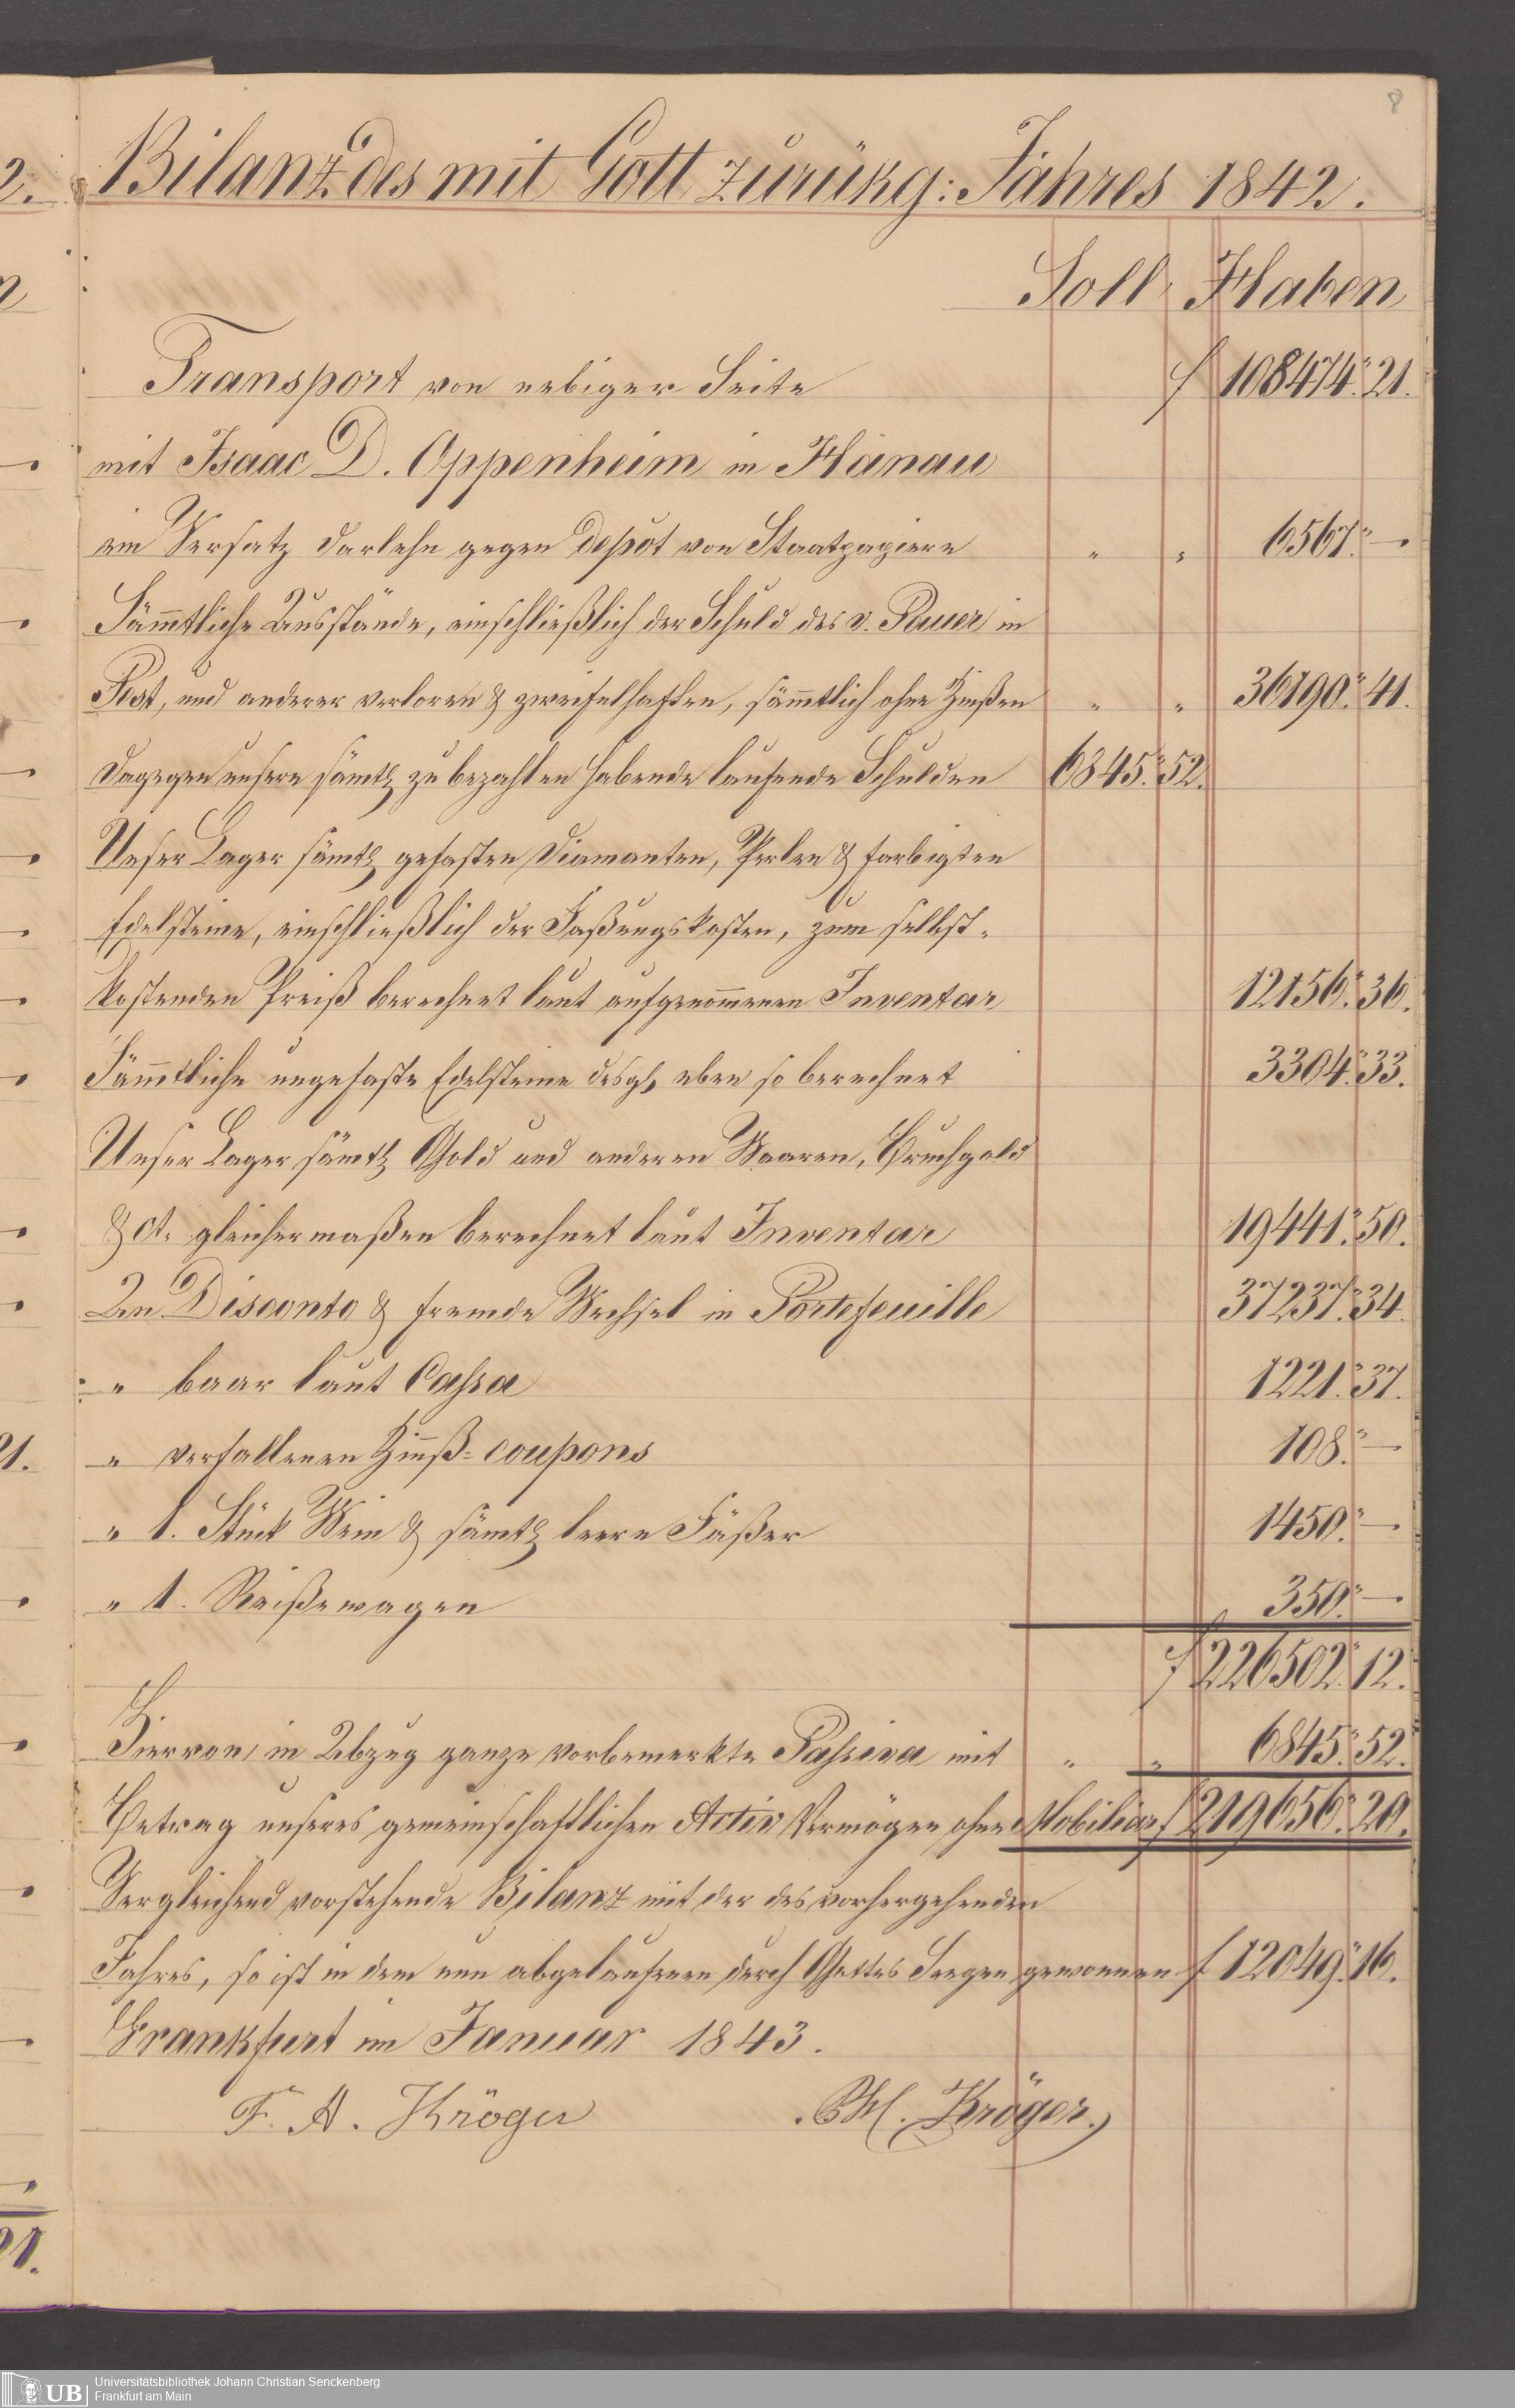 8
Bilanz des mit Gott zurükg: Jahres 1842.
Soll Haben
Transport von nebiger Seite f 108474. 21.
mit Isaac D. Oppenheim in Hanau
ein Versatz darlehn gegen depot von Staatpapiere " " 6567. —
Sämtliche Ausstände, einschließlich der Schuld des v. Pauer in
Pest, und anderer verloren & zweifelhaften, sämtlich ohne Zinßen " " 36190. 41.
dagegen unsere sämtl zu bezahlen habende laufende Schulden 6845. 52.
Unser Lager sämtl gefasten Diamanten, Perlen & farbigten
Edelsteine, einschließlich der Faßungskosten, zum selbst-
kostenden Preiß berechnet laut aufgenommenen Inventar 12156. 36.
Sämtliche ungefaste Edelsteine desgl, eben so berechnet 3304. 33.
Unser Lager sämtl Gold und anderen Waaren, Bruchgold
& ct. gleichermaßen berechnet laut Inventar 19441. 50.
An Disconto & fremde Wechsel in Portefeuille 37237. 34.
" baar laut Cassa 1221. 37.
" verfallenen Zinß-coupons 108. —
" 1. Stück Wein & sämtl leere Fäßer 1450. —
" 1. Reißewagen 350. —
f 226502. 12.
Hiervon in Abzug ganze vorbemerkte Passiva mit " " 6845. 52.
Betrag unseres gemeinschaftlichen Activ Vermögen ohne Mobiliar f 219656. 20.
Vergleichend vorstehende Bilanz mit der des vorhergehenden
Jahres, so ist in dem nun abgelaufenen durch Gottes Seegen gewonnen f 12049. 16.
Frankfurt im Januar 1843.
F. A. Kröger W. Kröger.
UB Universitätsbibliothek Johann Christian Senckenberg
Frankfurt am Main